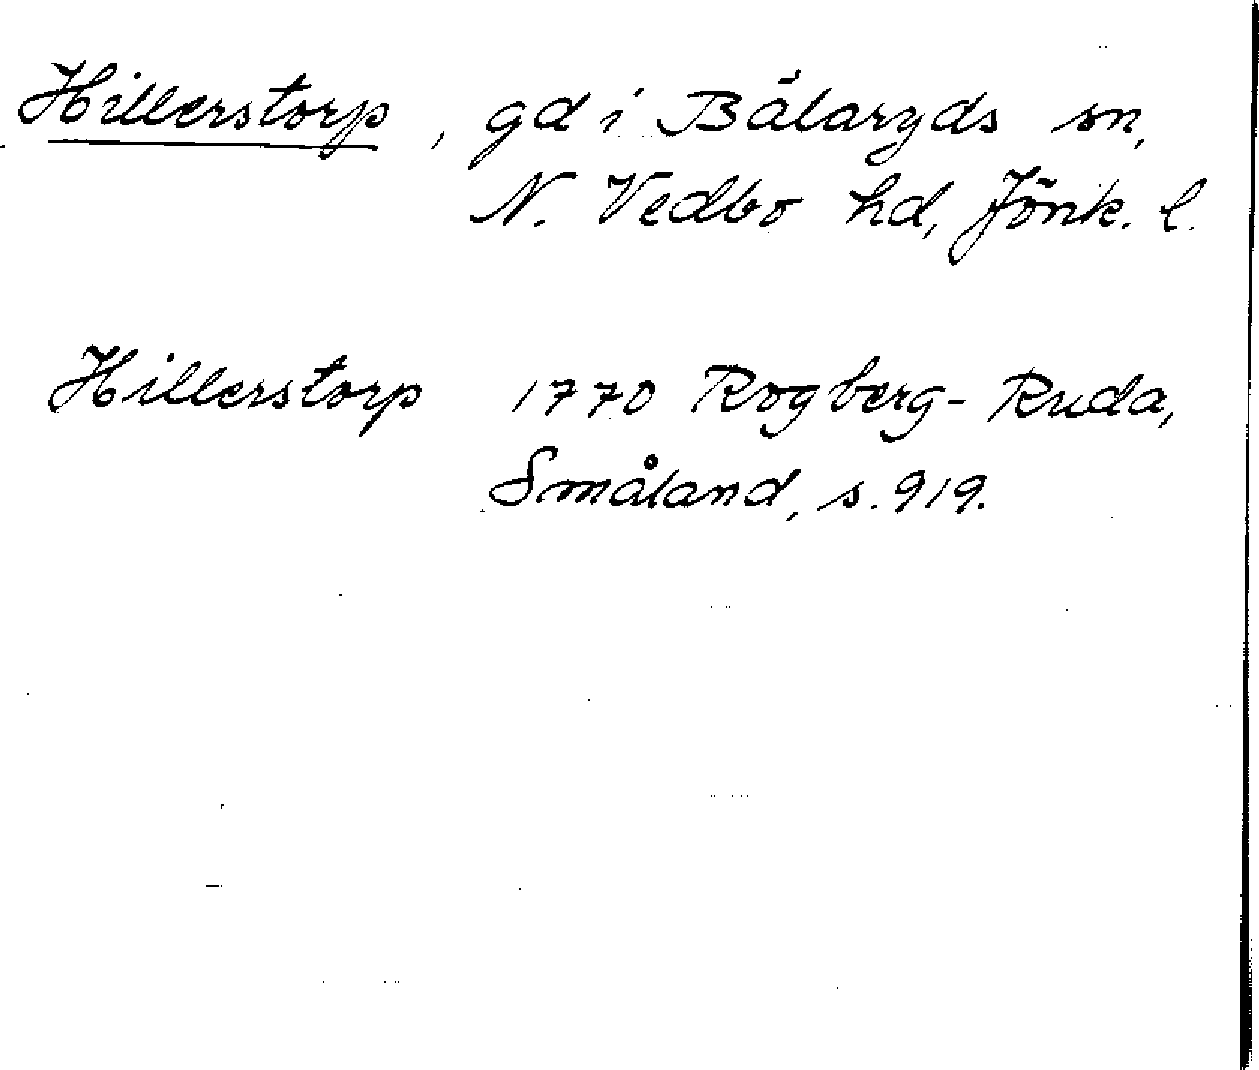 Hillerstorp, gd i Bälaryds sn,
N. Vedbo hd, Jönk. l.
Hillerstorp 1770 Rogberg-Ruda,
Småland, s. 919.